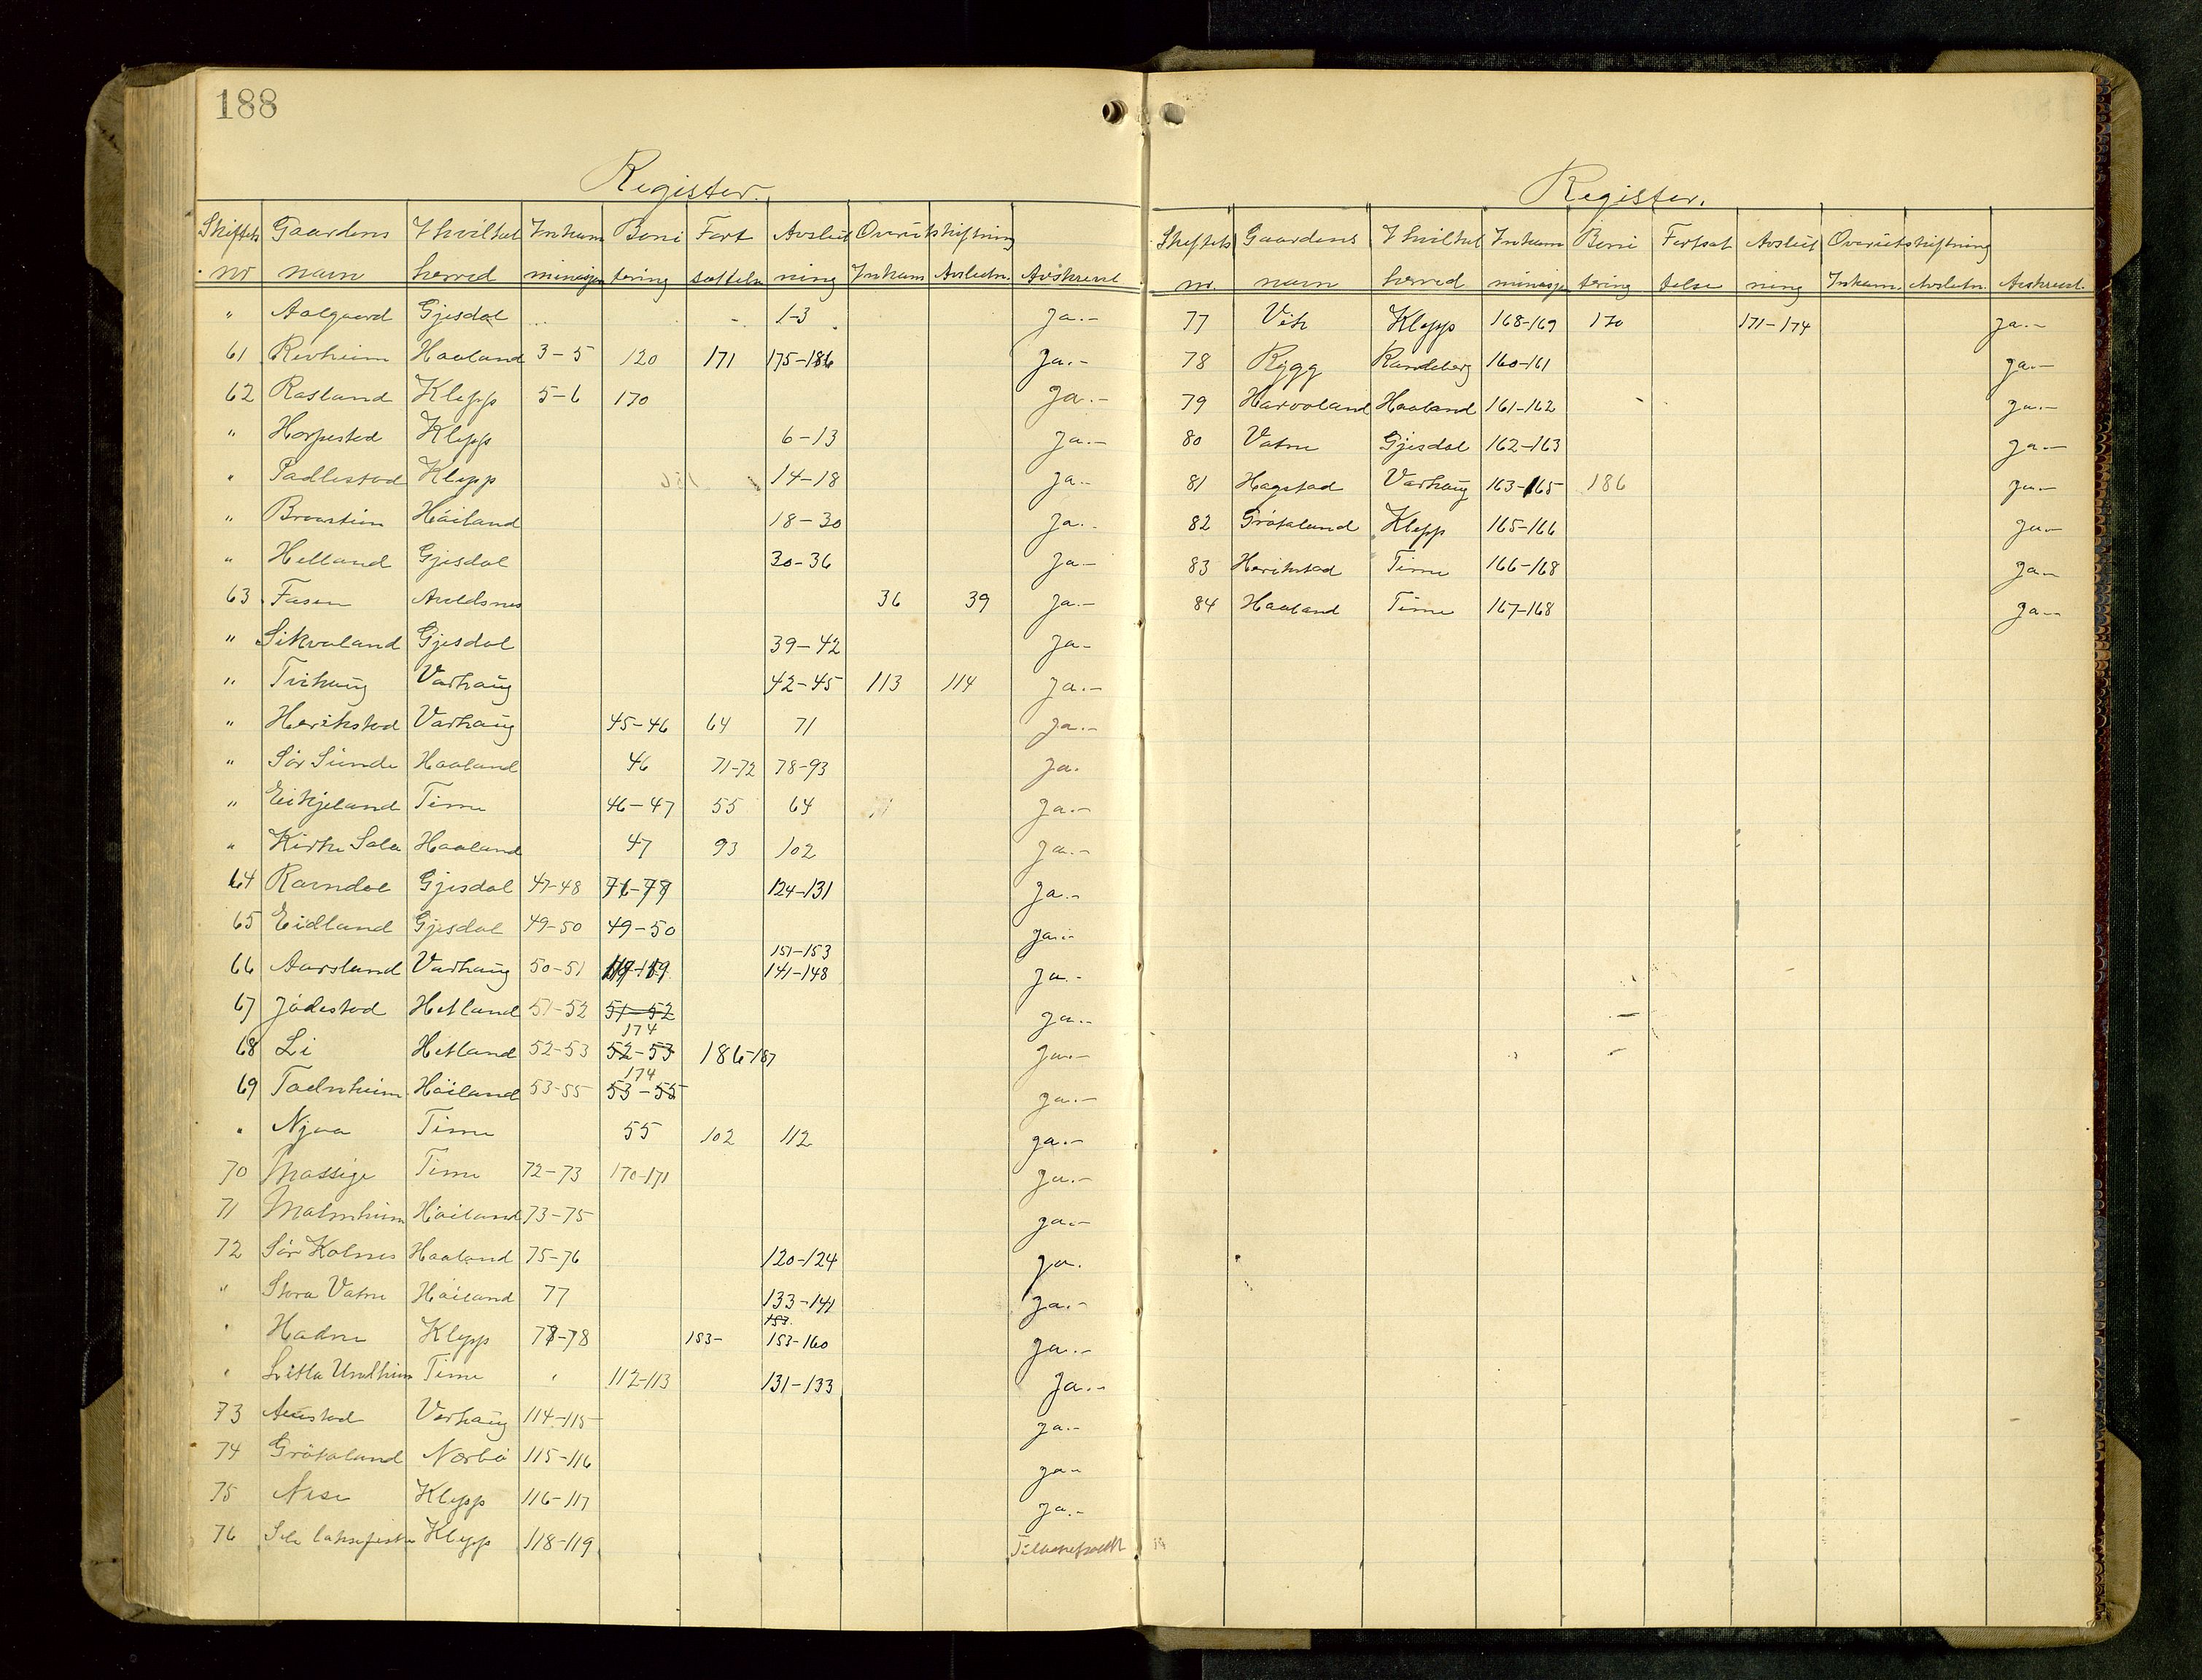 188
Register.
Skiftets Gaardens I hvilket Inkam Boni Fort Avslut Overutskiftning
nr navn herred minasjon tering sættelse ning Inkam Avslutn. Avskrevet
" Aalgaard Gjesdal 1-3 Ja.-
61 Revheim Haaland 3-5 120 171 175-186 Ja.-
62 Rasland Klepp 5-6 170 Ja.-
" Horpestad Klepp 6-13 Ja.-
" Padlestad Klepp 14-18 Ja.-
" Braastein Höiland 18-30 Ja.-
" Helland Gjesdal 30-36 Ja-
63 Fasen Avldsnes 36 39 Ja.-
" Sikvaland Gjesdal 39-42 Ja-
" Tvihaug Varhaug 42-45 113 114 Ja.-
" Herikstad Varhaug 45-46 64 71 Ja.-
" Sör Sunde Haaland 46 71-72 78-93 Ja.
" Eikjeland Time 46-47 55 64 Ja.-
" Kirke Sola Haaland 47 93 102 Ja.-
64 Ravndal Gjesdal 47-48 124-131 Ja.-
65 Eidland Gjesdal 49-50 49-50 Ja.-
151-153
66 Aarsland Varhaug 50-51 141-148 Ja.-
67 Jådestad Hetland 51-52 51-52 Ja.-
174
68 Li Hetland 52-53 52-53 186-187 Ja.-
174
69 Höiland 53-55 53-55 Ja.-
" Njaa Time 55 102 112 Ja.-
70 Mossige Time 72-73 170-171 Ja.-
71 Malmheim Höiland 73-75 Ja.-
72 Sör Kolnes Haaland 75-76 120-124 Ja.
" Stora Vatne Höiland 77 133-141 Ja.-
153
" Hadne Klepp 77-78 153- 153-160 Ja.-
" Litla Undheim Time " 112-113 131-133 Ja.-
73 Austad Varhaug 114-115 Ja.-
74 Grötaland Nærbö 115-116 Ja-
75 Nese Klepp 116-117 Ja.-
76 Sele laksefiske Klepp 118-119
Register.
Skiftets Gaardens I hvilket Inkam Boni Fortsat Avslut Overutskiftning
nr. navn herred minasjon tering telse ning Inkam. Avslutn. Avskrevet.
77 Vik Klepp 168-169 170 171-174 Ja.-
78 Rygg Randeberg 160-161 Ja.-
79 Harvaland Haaland 161-162 Ja.-
80 Vatne Gjesdal 162-163 Ja.-
81 Hagstad Varhaug 163-165 186 Ja.-
82 Grötaland Klepp 165-166 Ja.-
83 Herikstad Time 166-168 Ja.-
84 Haaland Time 167-168 Ja.-